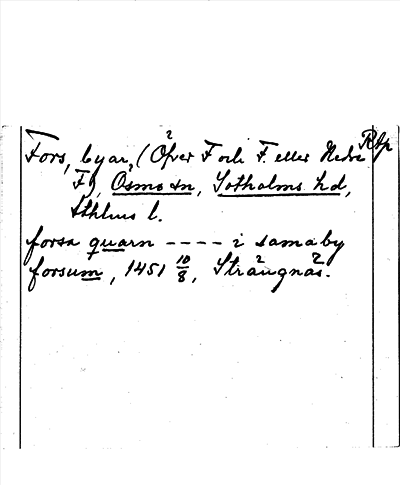 Fors, byar, (Öfver F. och F. eller Nedre Rtp
F.), Ösmo sn, Sotholms hd,
Sthlms l.
forsa quarn ---- i sama by
forsum, 1451 10/8, Strängnäs.